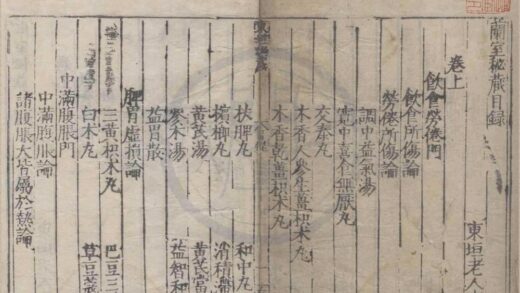 蘭室秘藏目録
東垣老人
卷上
飲食勞倦門
飲食所傷論
勞倦所傷論
調中益氣湯
寬中喜食無厭丸
交泰丸
木香人參生薑枳术丸
木香乾薑枳术丸
扶脾丸 和中丸
檳榔丸 消積滯
黃芪湯 黃芪當
參术湯 益智和
益胃散
脾胃虛損論
三黃枳术丸 巴豆三
白术丸 草豆蔻
中滿腹脹門
中滿腹脹論
諸腹脹大皆屬於熱論